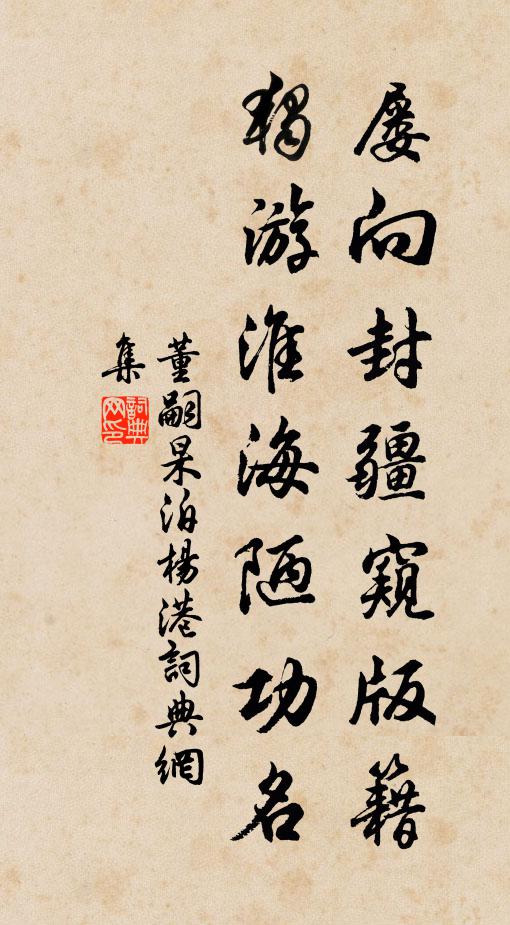 屡向封疆窥版籍
独游淮海陋功名
董嗣杲泊杨港詞典網
集
詞典
网印